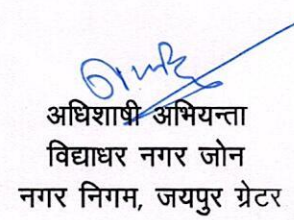 अधिशाषी अभियन्ता
विद्याधर नगर जोन
नगर निगम, जयपुर ग्रेटर